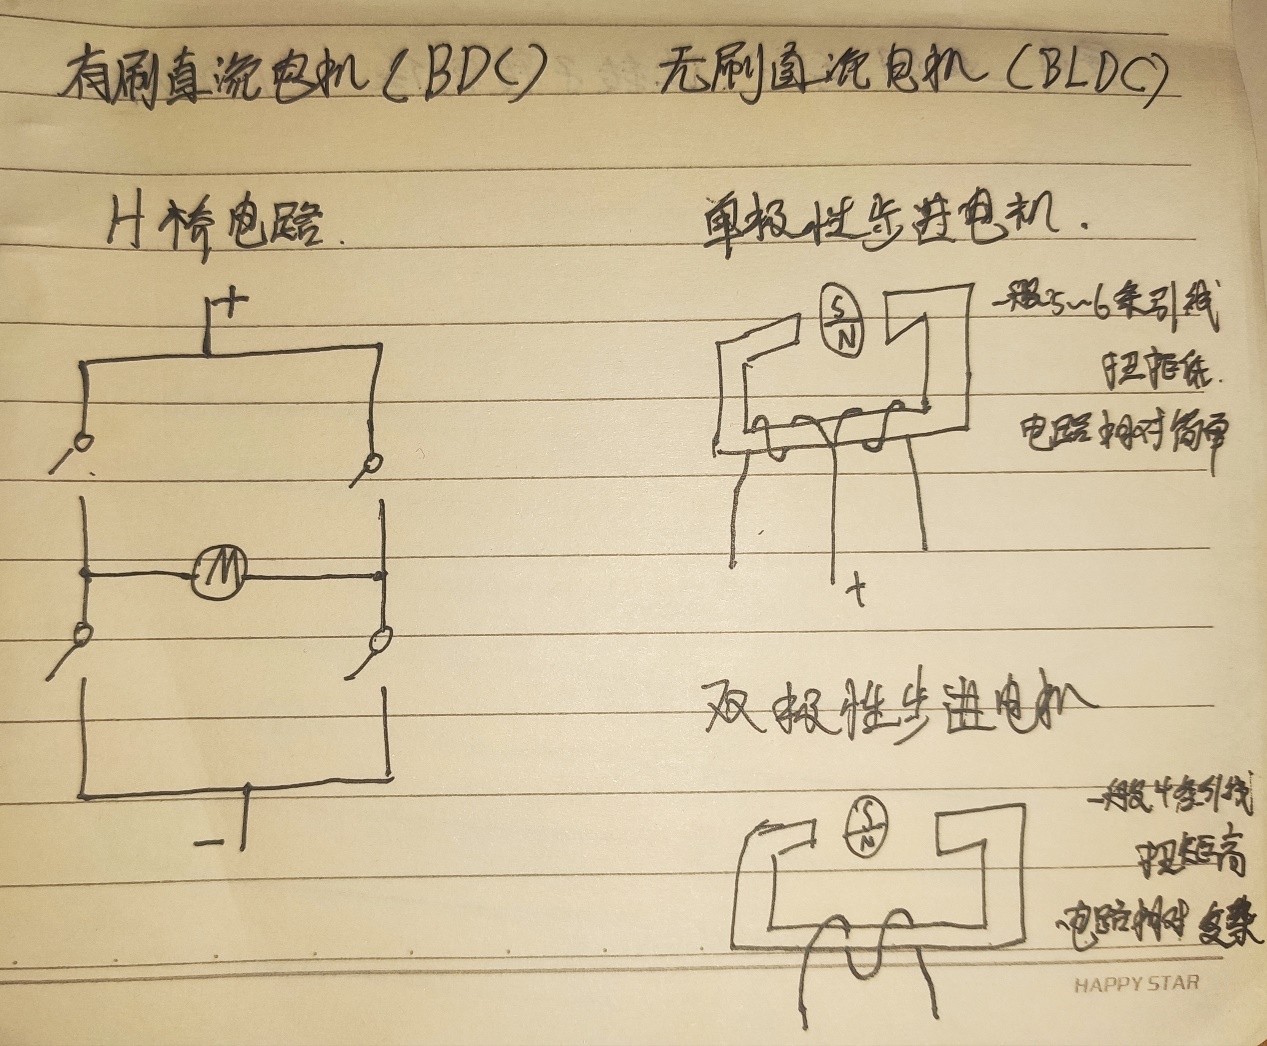 有刷直流电机(BDC)
无刷直流电机(BLDC)
H桥电路.
+
M
-
单极性步进电机.
S
N
一般5~6条引线
扭矩低.
电路相对简单
+
双极性步进电机
S
N
一般4条引线
扭矩高
电路相对复杂
HAPPY STAR